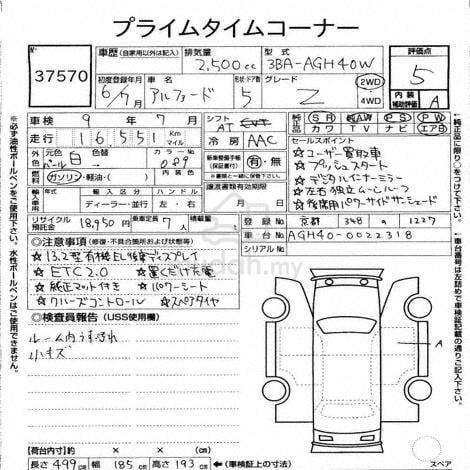 プライムタイムコーナー
37570
車歴 (自家用以外は記入)
排気量 2,500cc
型式 3BA-AGH40W
評価点 5
初度登録年月 6/7月
車名 アルファード
形状・ドア数 5
グレード Z
2WD
4WD
内装補助評価 A
車検 9年7月
シフト AT
純正品 SR AW PS PW
カワ TV ナビ エアB
走行 16,551 Km マイル
冷房 AAC
セールスポイント
色 元色
パール白
カラーNo. 089
新車整備手帳(保証書付) 有・無
☆ユーザー買取車
☆プッシュスタート
☆デジタルインナーミラー
☆左右独立ムーンルーフ
☆後席用パワーサイドサンシェード
燃料 ガソリン・軽油・( )
譲渡書類有効期限
年 月 日
輸入車 ディーラー・並行 左・右
リサイクル預託金 18,950円
乗車定員 7人
積載量
登録No. 京都 348 a 1227
車台No. AGH40-0022318
シリアルNo.
◎注意事項 (修復・不具合箇所および状態等)
☆13.2型有機EL後席ディスプレイ
☆ETC2.0 ☆置くだけ充電
☆純正マット付き ☆パワーシート
☆クルーズコントロール ☆スペアタイヤ
◎検査員報告 (USS使用欄)
ルーム内うすヨゴレ
小キズ
A
mudah.my
【荷台内寸】 × ×
長さ 499cm 幅 185cm 高さ 193cm ←(車検証上の寸法)
スペア
※必ず油性ボールペンをご使用下さい。水性ボールペンはご使用できません。
純正品に限り○をつけて下さい。
※車台番号は左詰めで車検証記載の通りご記入下さい。